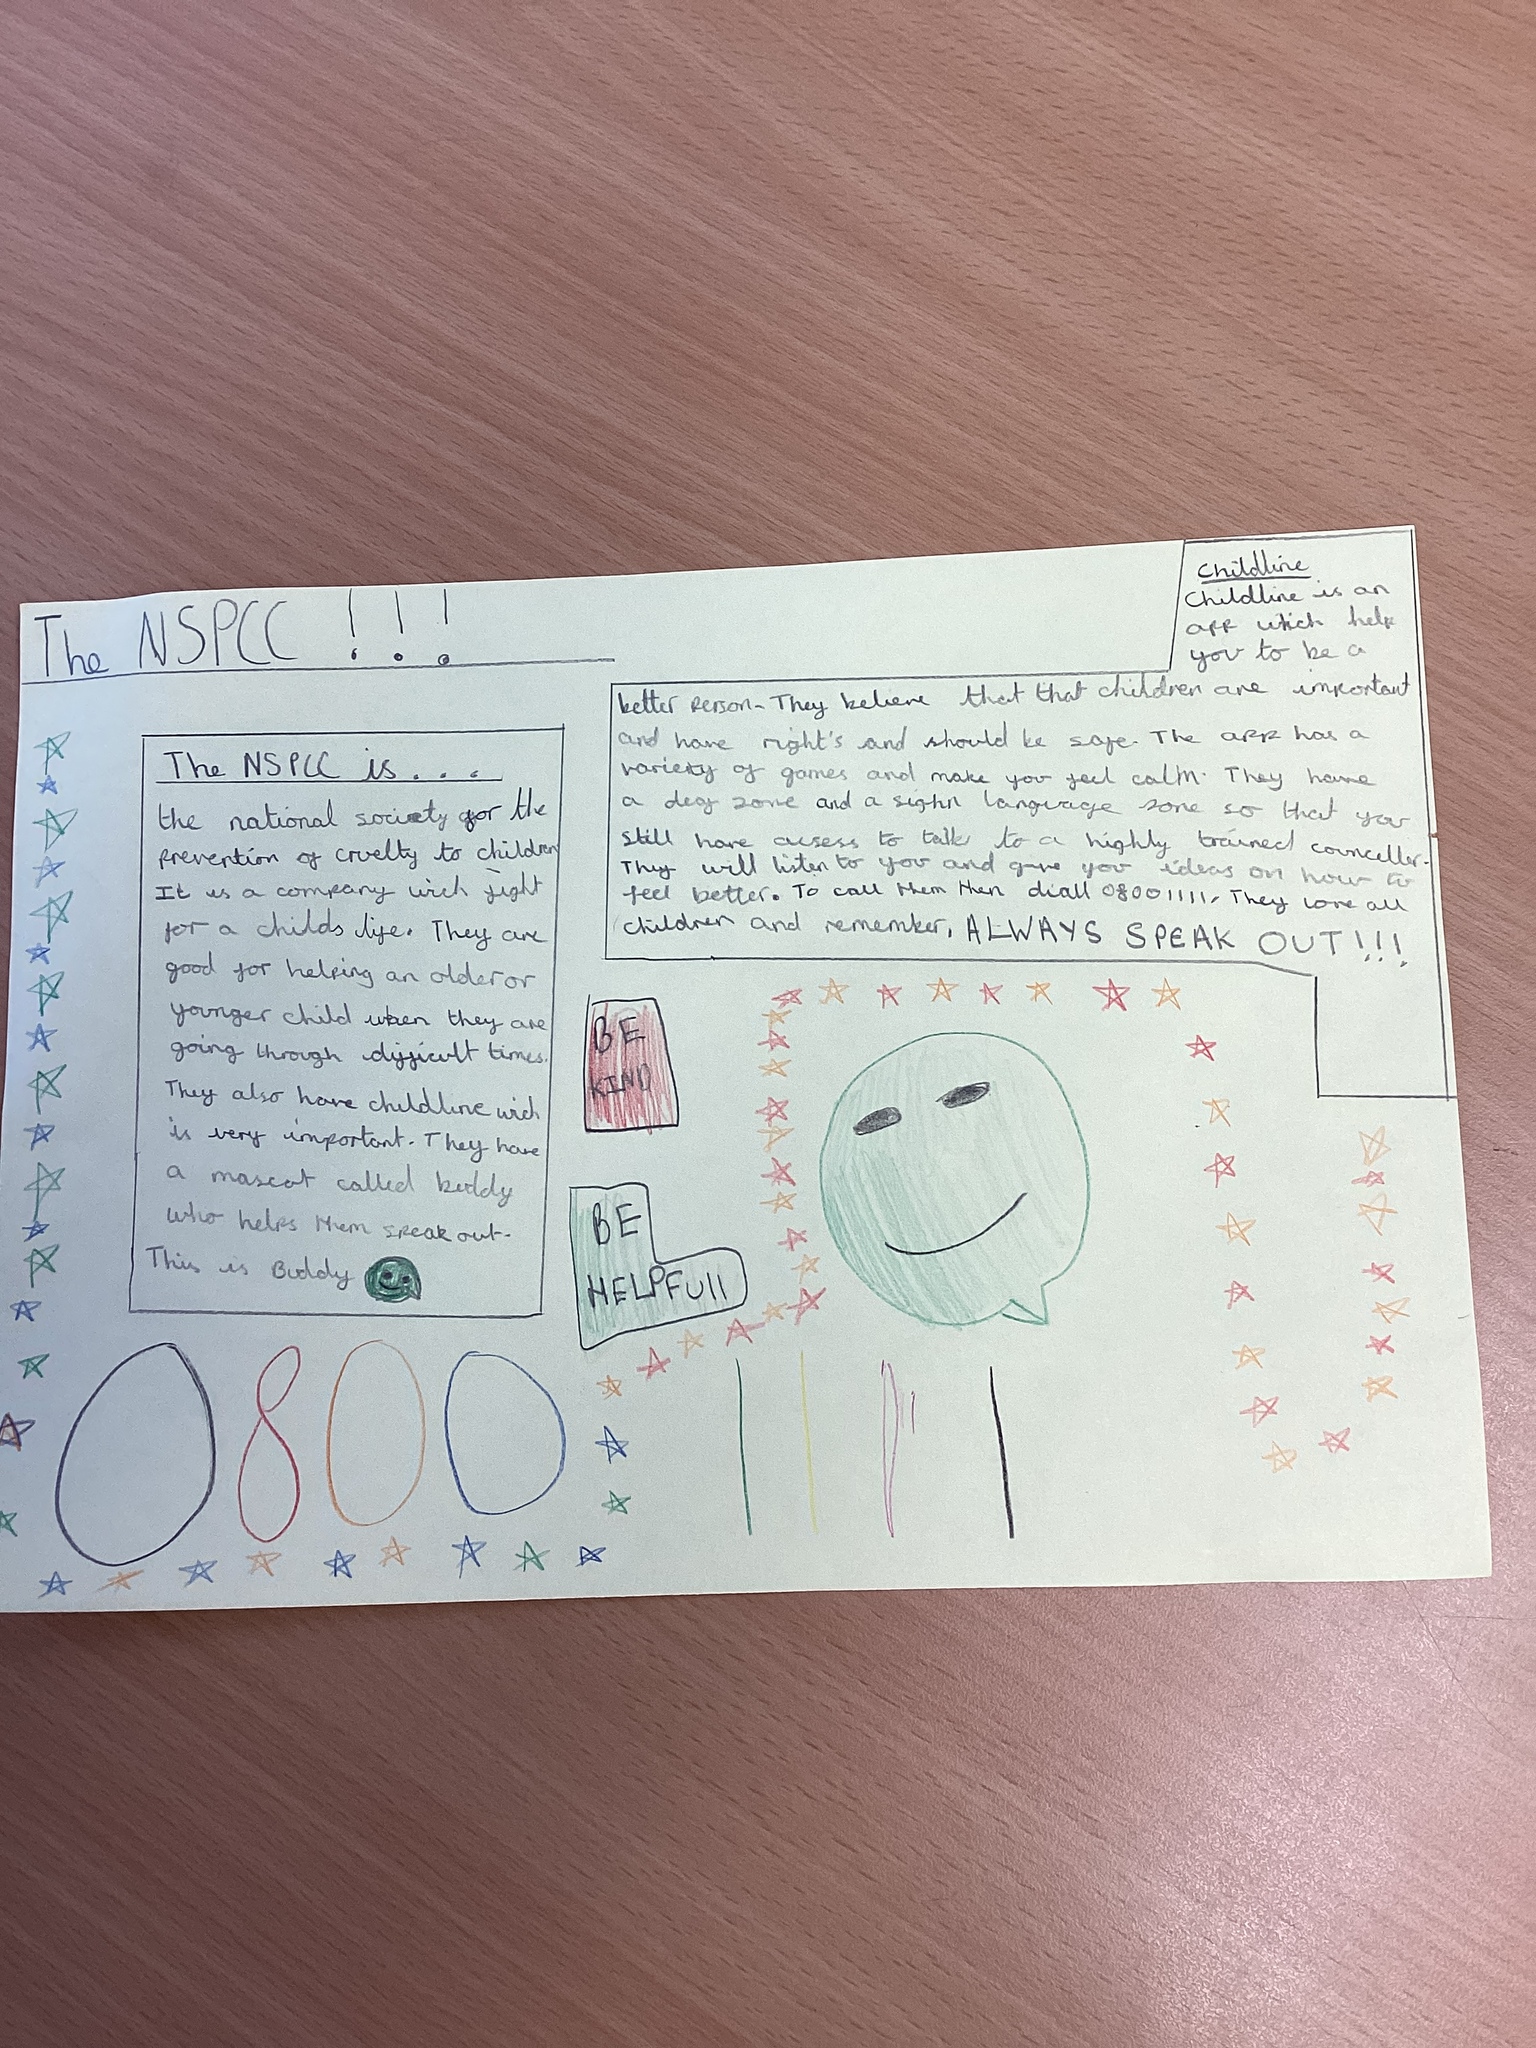 The NSPCC !!!
The NSPCC is....
the national society for the
prevention of cruelty to children
It is a company wich fight
for a childs life. They are
good for helping an older or
younger child when they are
going through difficult times.
They also have childline wich
is very important. They have
a mascot called buddy
who helps them speak out.
This is Buddy
Childline
Childline is an
app which help
you to be a
better person. They believe that that children are important
and have right's and should be safe. The app has a
variety of games and make you feel calm. They have
a deaf zone and a sighn language zone so that you
still have acsess to talk to a highly trained counceller.
They will listen to you and give you ideas on how to
feel better. To call them then diall 08001111. They love all
children and remember, ALWAYS SPEAK OUT!!!
BE
KIND
BE
HELPFUll
0800 1111